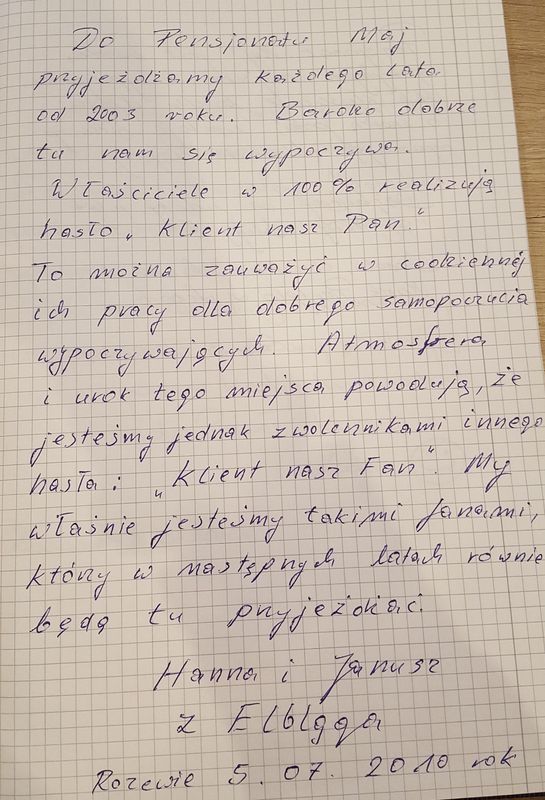 Do Pensjonatu Maj
przyjeżdżamy każdego lata
od 2003 roku. Bardzo dobrze
tu nam się wypoczywa.
Właściciele w 100% realizują
hasło „Klient nasz Pan."
To można zauważyć w codziennej
ich pracy dla dobrego samopoczucia
wypoczywających. Atmosfera
i urok tego miejsca powodują, że
jesteśmy jednak zwolennikami innego
hasła: „Klient nasz Fan". My
właśnie jesteśmy takimi fanami,
którzy w następnych latach równie
będą tu przyjeżdżać.
Hanna i Janusz
z Elbląga
Rozewie 5.07.2010 rok